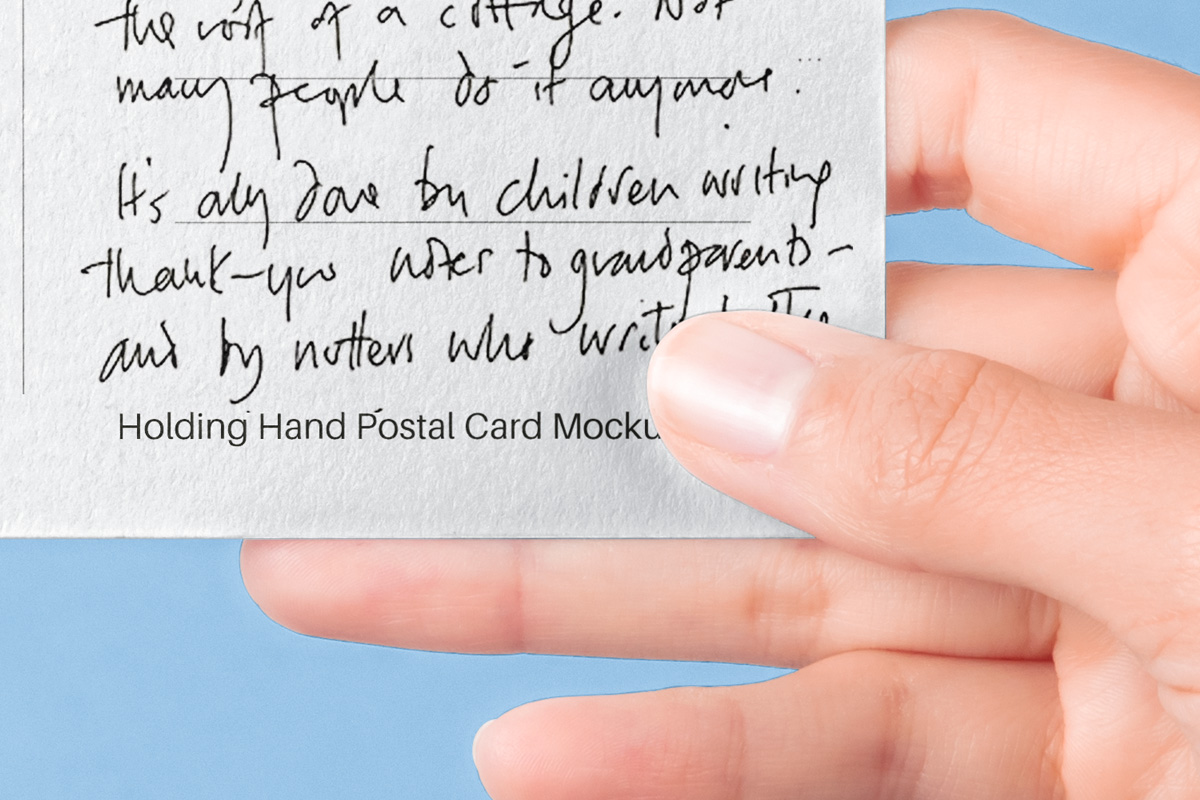 the roof of a cottage. Not
many people do it anymore.
It's only done by children writing
thank-you notes to grandparents -
and by nutters who write
Holding Hand Postal Card